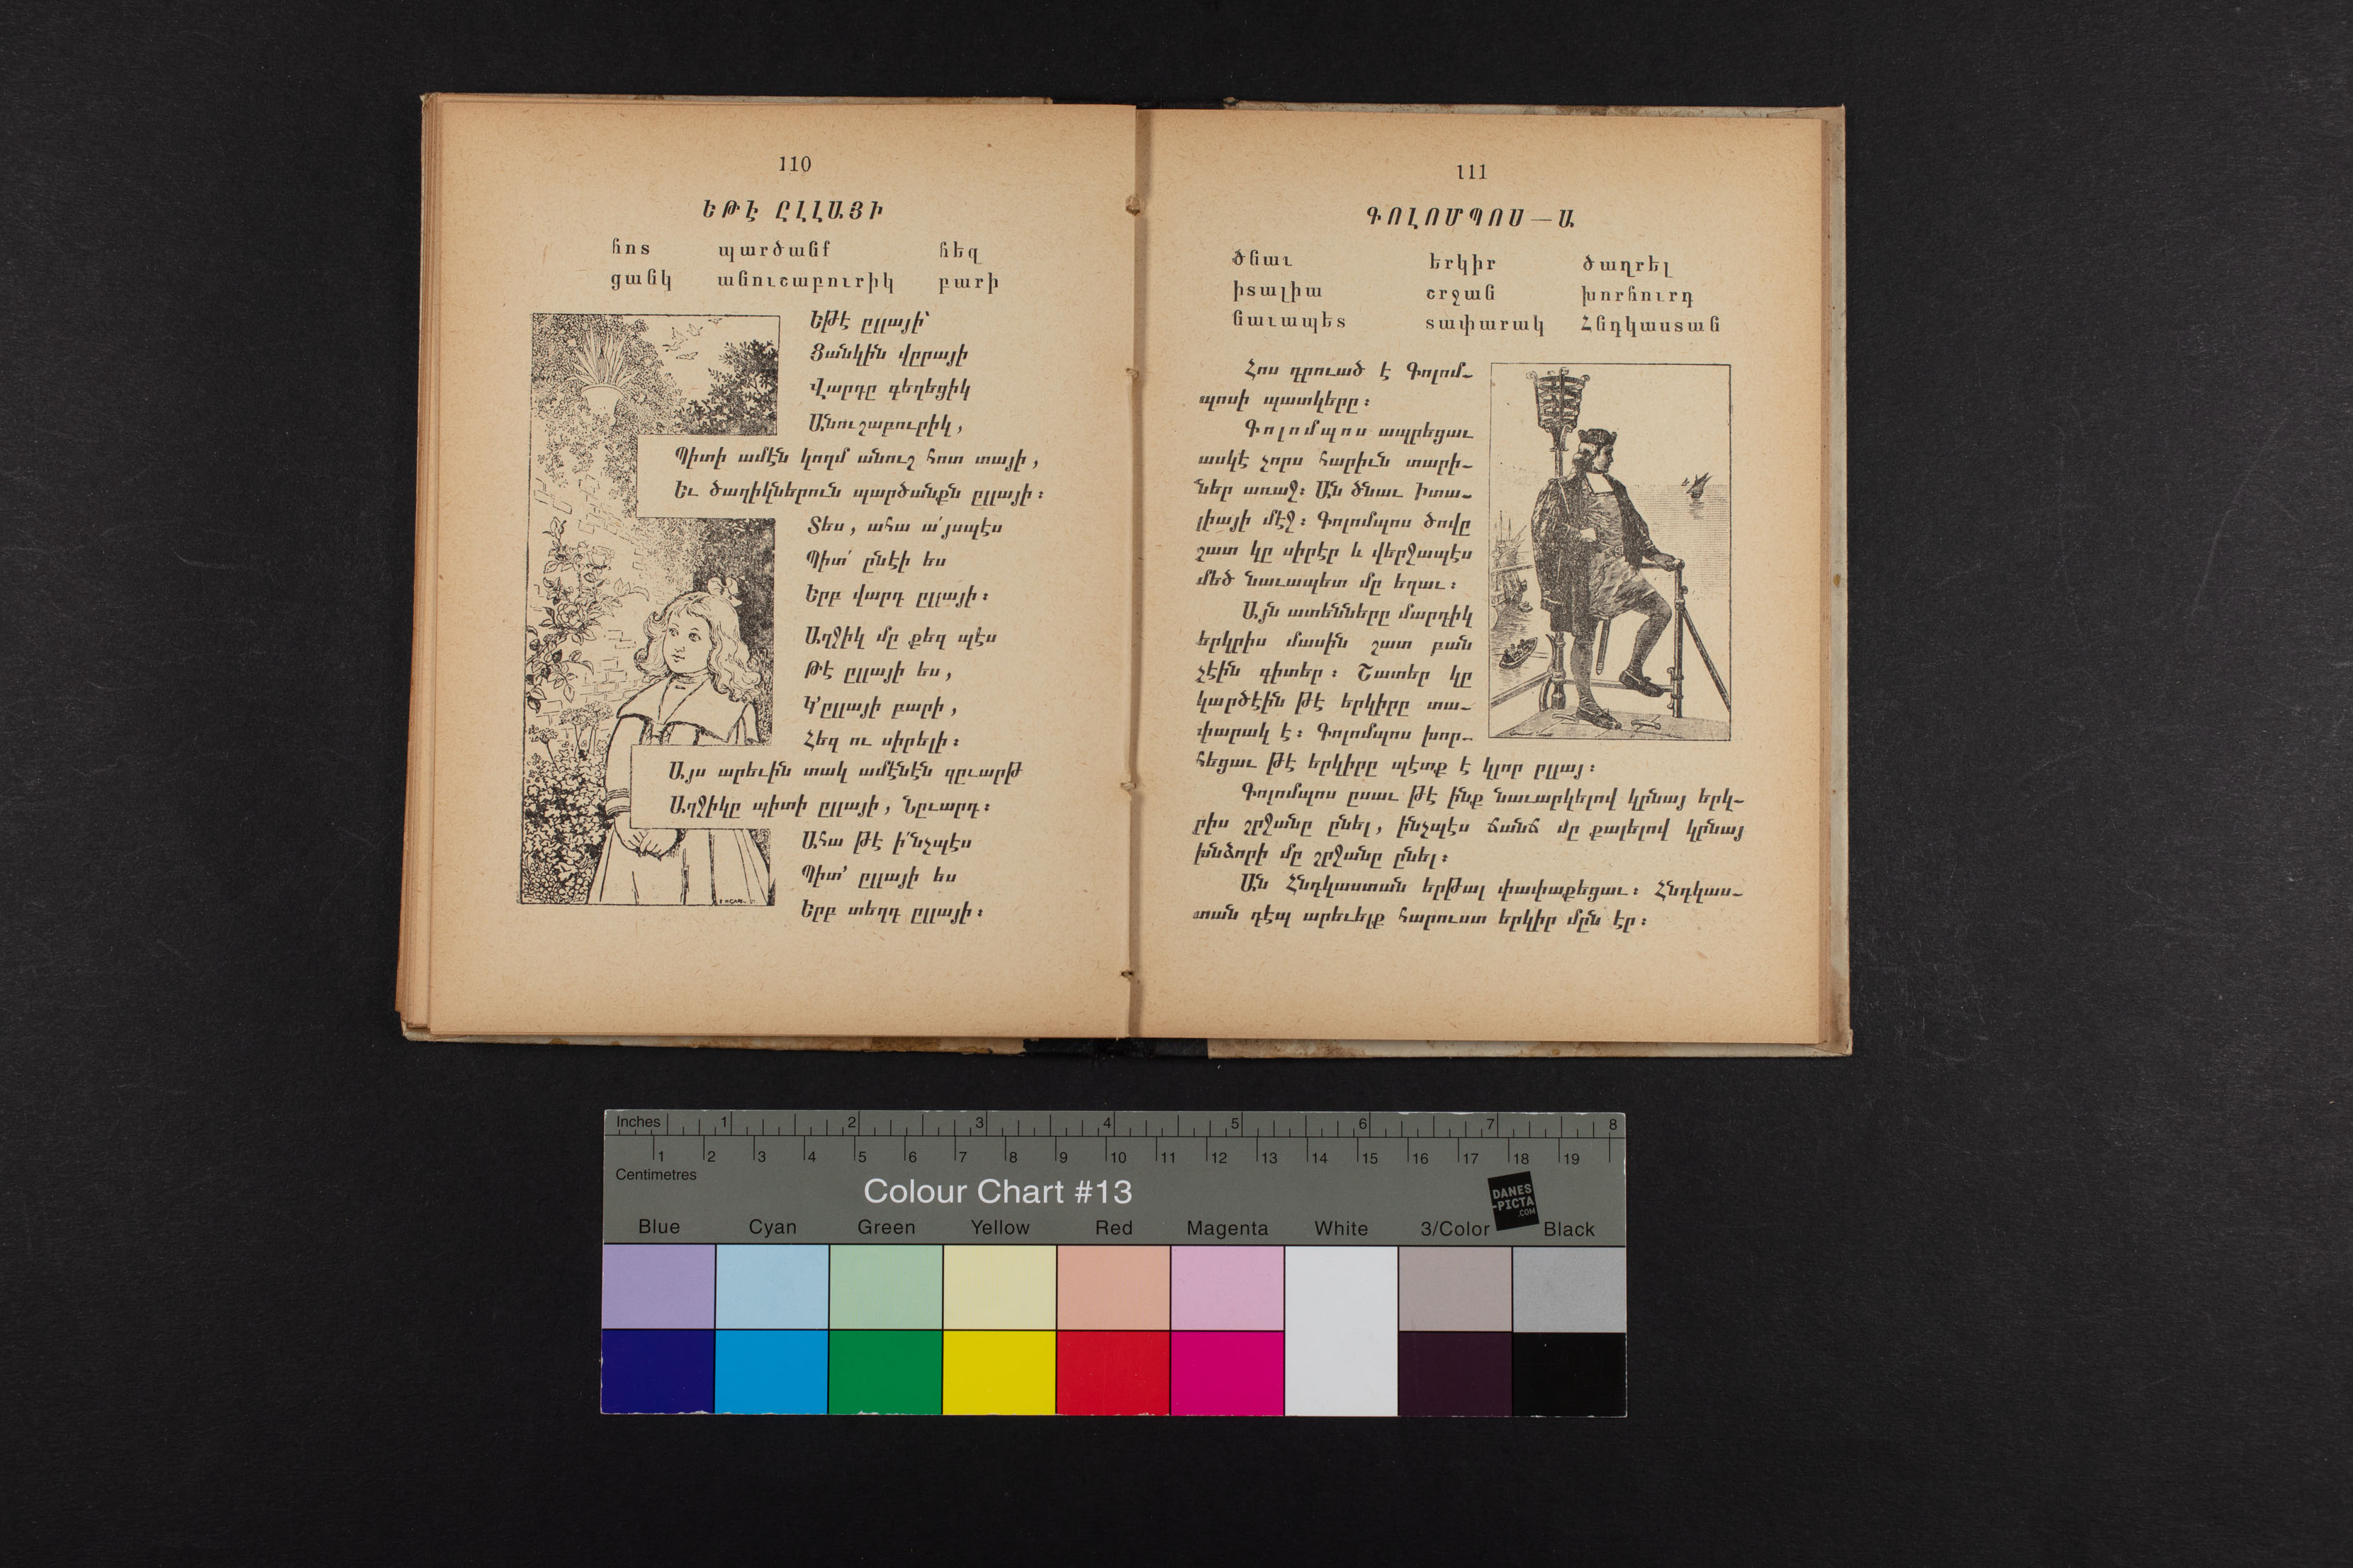 110
ԵԹԷ ԸԼԼԱՅԻ
հոտ պարծանք հեզ
ցանկ անուշաբուրիկ բարի
Եթէ ըլլայի՝
Ցանկին վըրայի
Վարդը գեղեցիկ
Անուշաբուրիկ,
Պիտի ամէն կողմ անուշ հոտ տայի,
Եւ ծաղիկներուն պարծանքն ըլլայի։
Տես, ահա ա՛յսպէս
Պիտ՛ ընէի ես
Երբ վարդ ըլլայի։
Աղջիկ մը քեզ պէս
Թէ ըլլայի ես,
Կ՚ըլլայի բարի,
Հեզ ու սիրելի։
Այս արեւին տակ ամէնէն զըւարթ
Աղջիկը պիտի ըլլայի, Նըւարդ։
Ահա թէ ի՛նչպէս
Պիտ՚ ըլլայի ես
Երբ տեղդ ըլլայի։
111
ԳՈԼՈՄՊՈՍ — Ա
ծնաւ երկիր ծաղրել
իտալիա շրջան խորհուրդ
նաւապետ տափարակ Հնդկաստան
Հոս դրուած է Գոլոմ-
պոսի պատկերը։
Գոլոմպոս ապրեցաւ
ասկէ չորս հարիւն տարի-
ներ առաջ։ Ան ծնաւ Իտա-
լիայի մէջ։ Գոլոմպոս ծովը
շատ կը սիրէր և վերջապէս
մեծ նաւապետ մը եղաւ։
Այն ատենները մարդիկ
երկրիս մասին շատ բան
չէին գիտեր։ Շատեր կը
կարծէին թէ երկիրը տա-
փարակ է։ Գոլոմպոս խոր-
հեցաւ թէ երկիրը պէտք է կլոր ըլլայ։
Գոլոմպոս ըսաւ թէ ինք նաւարկելով կրնայ երկ-
րիս շրջանը ընել, ինչպէս ճանճ մը քալելով կրնայ
խնձորի մը շրջանը ընել։
Ան Հնդկաստան երթալ փափաքեցաւ։ Հնդկաս-
տան դէպ արեւելք հարուստ երկիր մըն էր։
Inches 1 2 3 4 5 6 7 8
1 2 3 4 5 6 7 8 9 10 11 12 13 14 15 16 17 18 19
Centimetres
Colour Chart #13
DANES
-PICTA
.COM
Blue Cyan Green Yellow Red Magenta White 3/Color Black